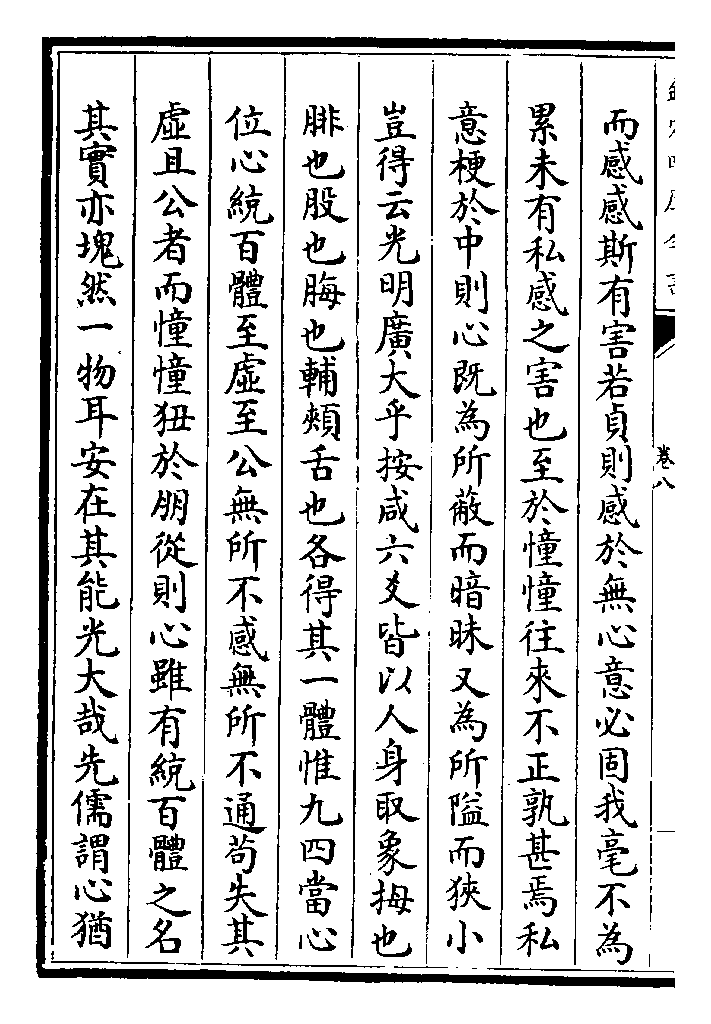 而感感斯有害若貞則感於無心意必固我毫不為
累未有私感之害也至於憧憧往來不正孰甚焉私
意梗於中則心既為所蔽而暗昧又為所隘而狹小
豈得云光明廣大乎按咸六爻皆以人身取象拇也
腓也股也脢也輔頰舌也各得其一體惟九四當心
位心統百體至虛至公無所不感無所不通茍失其
虛且公者而憧憧狃於朋從則心雖有統百體之名
其實亦塊然一物耳安在其能光大哉先儒謂心猶
卷八